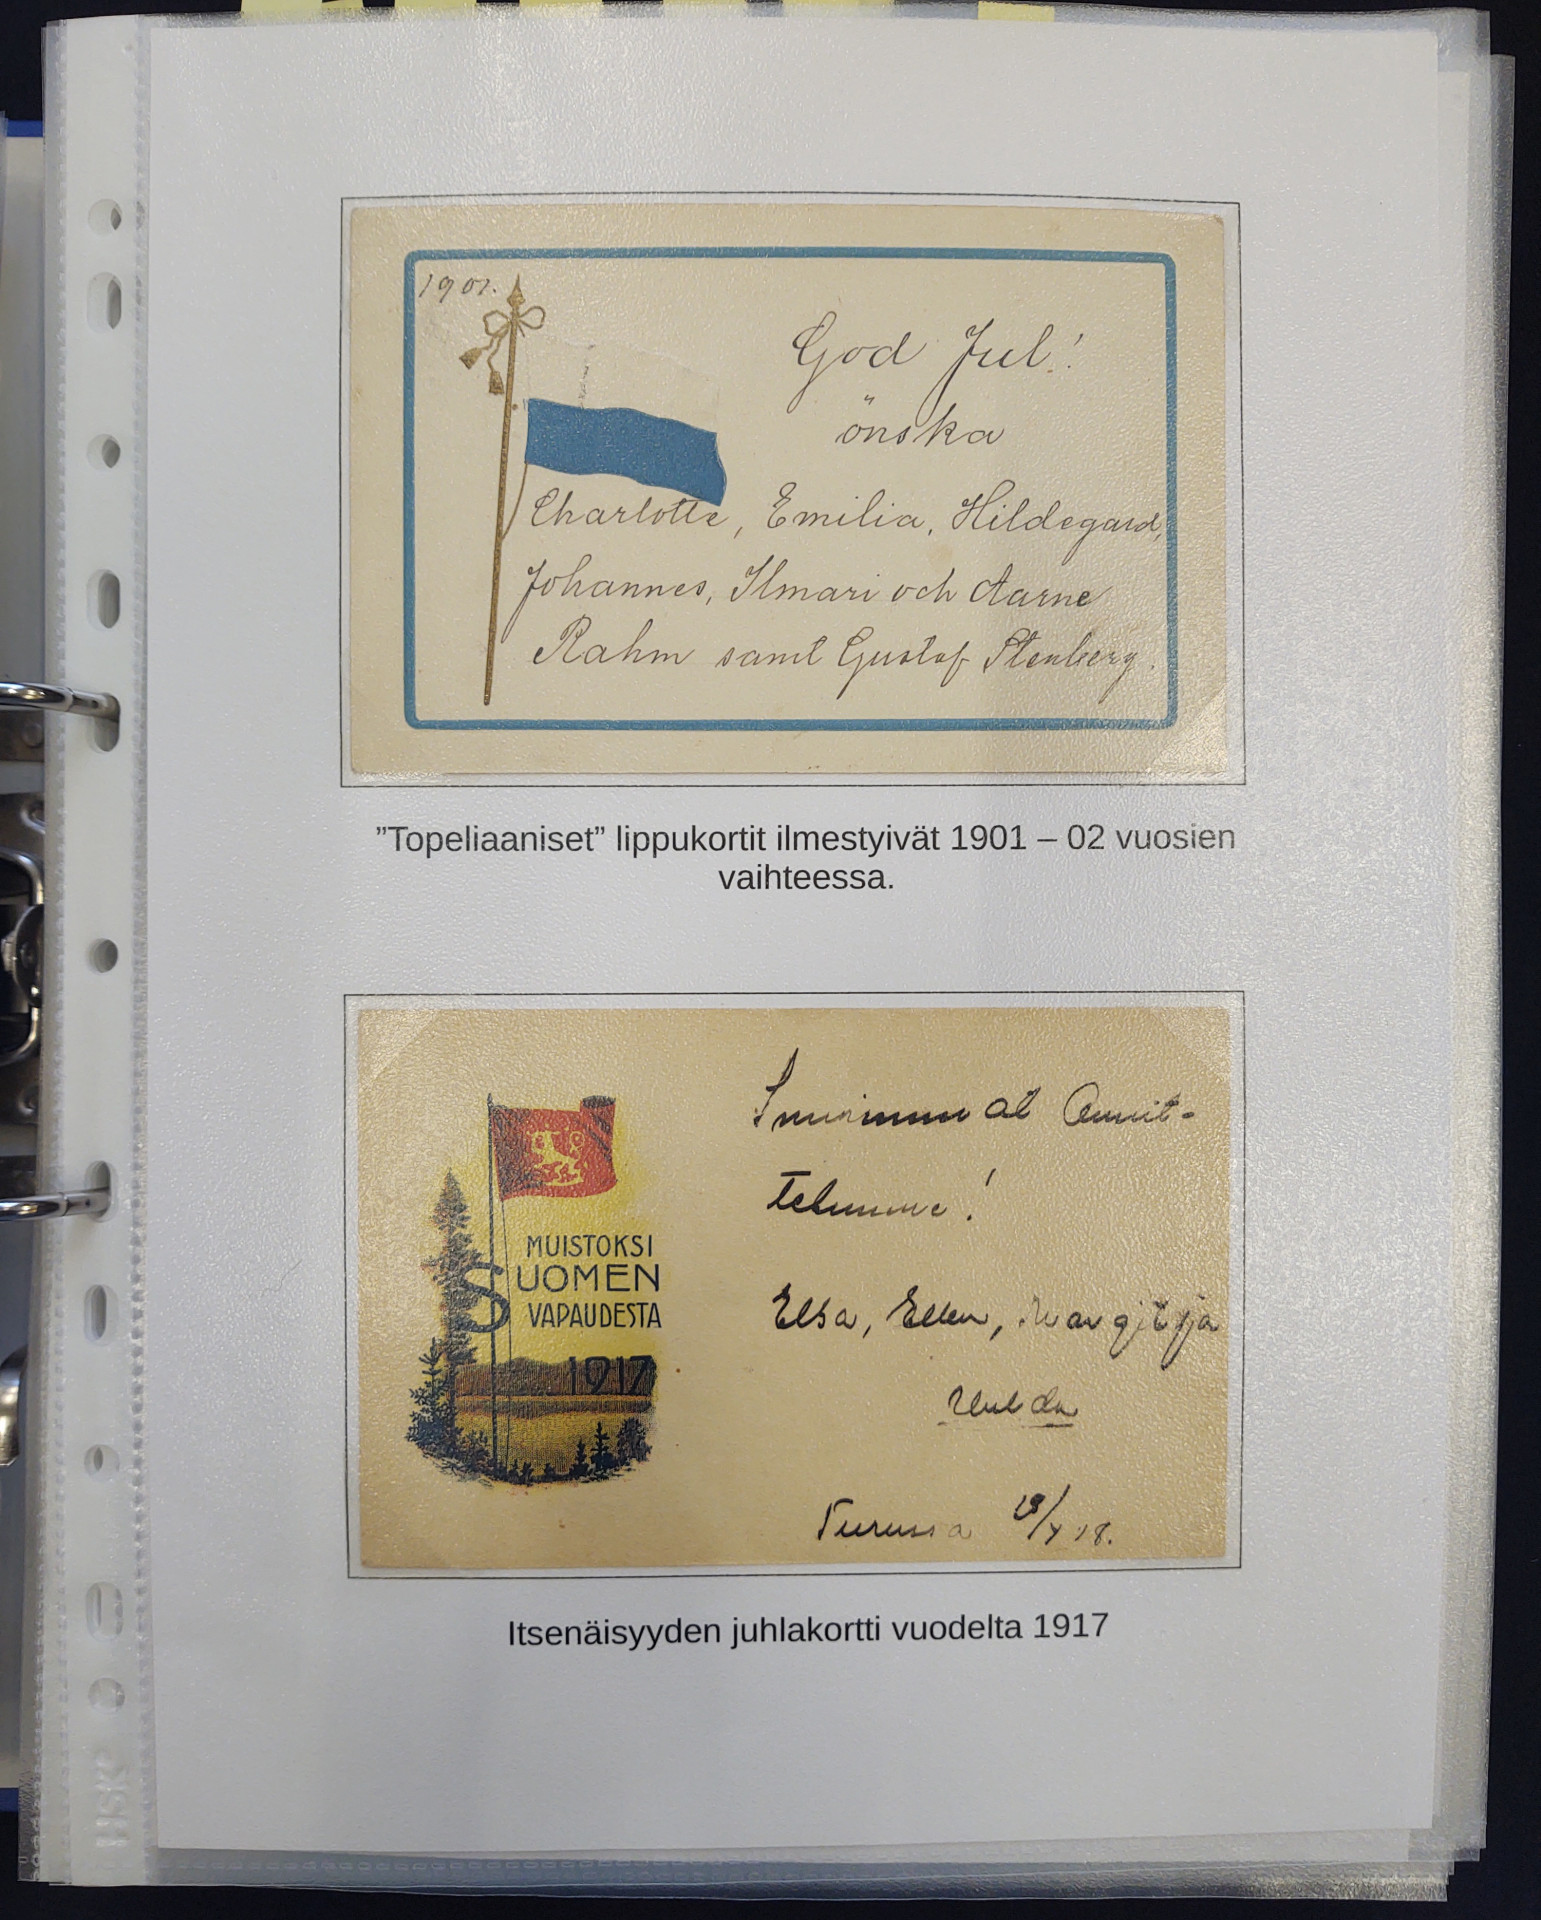 1901.
God Jul!
önska
Charlotte, Emilia, Hildegard,
Johannes, Ilmari och Aarne
Rahm samt Gustaf Stenberg.
”Topeliaaniset” lippukortit ilmestyivät 1901 – 02 vuosien
vaihteessa.
MUISTOKSI
SUOMEN
VAPAUDESTA
1917
Onnit-
telumme!
Elsa, Ellen, Margit ja
Hulda
Turussa
Itsenäisyyden juhlakortti vuodelta 1917